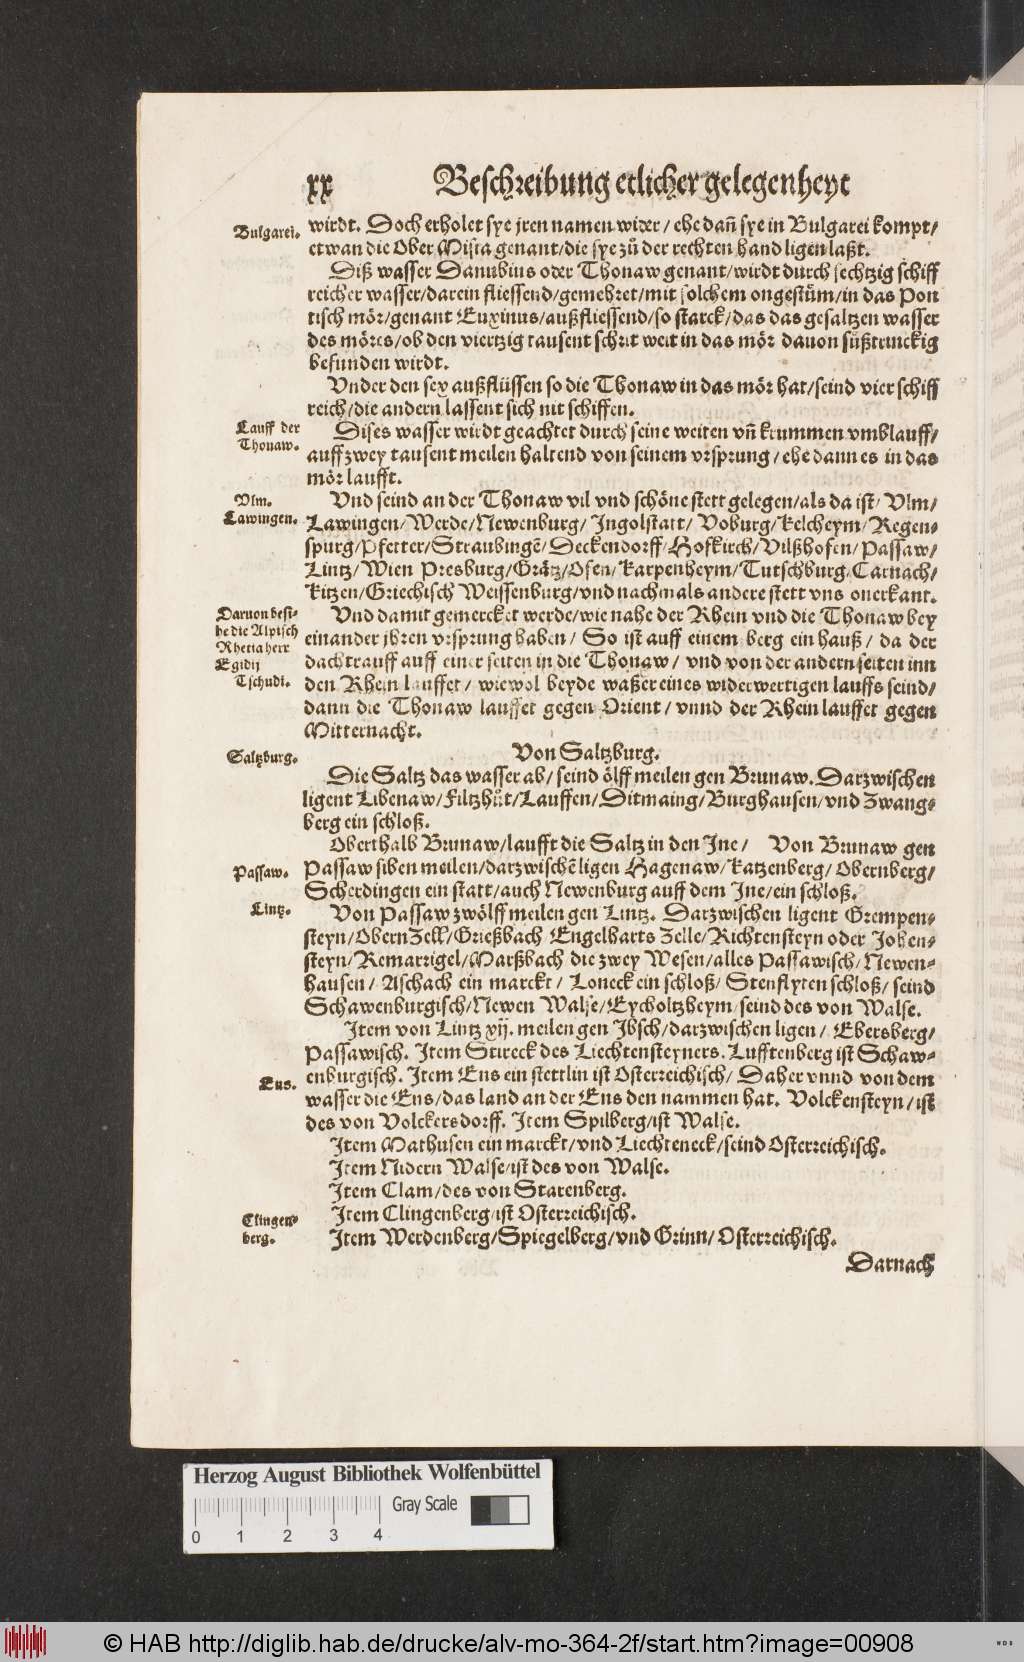 xx Beschreibung etlicher gelegenheyt
Bulgarei. wirdt. Doch erholet sye jren namen wider / ehe dañ sye in Bulgarei kompt /
etwan die Ober Misia genant / die sye zů der rechten hand ligen laßt.
Diß wasser Danubius oder Thonaw genant / wirdt durch sechtzig schiff
reicher wasser / darein fliessend / gemehret / mit solchem ongestům / in das Pon
tisch mör / genant Euxinus / außfliessend / so starck / das das gesaltzen wasser
des möres / ob den viertzig tausent schrit weit in das mör dauon süßtrinckig
befunden wirdt.
Vnder den sex außflüssen so die Thonaw in das mör hat / seind vier schiff
reich / die andern lassent sich nit schiffen.
Lauff der Thonaw. Dises wasser wirdt geachtet durch seine weiten vñ krummen vmblauff /
auff zwey tausent meilen haltend von seinem vrsprung / ehe dann es in das
mör laufft.
Vlm. Vnd seind an der Thonaw vil vnd schöne stett gelegen / als da ist / Vlm /
Lawingen. Lawingen / Werde / Newenburg / Ingolstatt / Voburg / Kelcheym / Regen-
spurg / Pfetter / Straubingē / Deckendorff / Hofkirch / Vilßhofen / Passaw /
Lintz / Wien Presburg / Grätz / Ofen / Karpenheym / Tutschburg / Carnach /
Kitzen / Griechisch Weissenburg / vnd nachmals andere stett vns onerkant.
Daruon besi- he die Alpisch Rhetia herr Egidij Tschudi. Vnd damit gemercket werde / wie nahe der Rhein vnd die Thonaw bey
einander jhren vrsprung haben / So ist auff einem berg ein hauß / da der
dachtrauff auff einer seiten in die Thonaw / vnd von der andern seiten inn
den Rhein lauffet / wiewol beyde waßer eines widerwertigen lauffs seind /
dann die Thonaw lauffet gegen Orient / vnnd der Rhein lauffet gegen
Mitternacht.
Saltzburg. Von Saltzburg.
Die Saltz das wasser ab / seind ölff meilen gen Brunaw. Darzwischen
ligent Libenaw / Filtzhůt / Lauffen / Ditmaing / Burghausen / vnd Zwang-
berg ein schloß.
Oberthalb Brunaw / laufft die Saltz in den Ine / Von Brunaw gen
Passaw. Passaw siben meilen / darzwischē ligen Hagenaw / Katzenberg / Obernberg /
Scherdingen ein statt / auch Newenburg auff dem Ine / ein schloß.
Lintz. Von Passaw zwölff meilen gen Lintz. Darzwischen ligent Grempen-
steyn / Obern Zell / Grießbach Engelharts Zelle / Richtensteyn oder Johen-
steyn / Remarzigel / Marßbach die zwey Wesen / alles Passawisch / Newen-
hausen / Aschach ein marckt / Loneck ein schloß / Stenflyten schloß / seind
Schawenburgisch / Newen Walse / Eycholtzheym / seind des von Walse.
Item von Lintz xij. meilen gen Ibsch / darzwischen ligen / Ebersberg /
Passawisch. Item Stireck des Liechtensteyners. Lufftenberg ist Schaw-
Ens. enburgisch. Item Ens ein stettlin ist Osterreichisch / Daher vnnd von dem
wasser die Ens / das land an der Ens den nammen hat. Volckensteyn / ist
des von Volckersdorff. Item Spilberg / ist Walse.
Item Mathusen ein marckt / vnd Liechteneck / seind Osterreichisch.
Item Nidern Walse / ist des von Walse.
Item Clam / des von Starenberg.
Clingen- berg. Item Clingenberg / ist Osterreichisch.
Item Werdenberg / Spiegelberg / vnd Grinn / Osterreichisch.
Darnach
Herzog August Bibliothek Wolfenbüttel
0 1 2 3 4 Gray Scale
© HAB http://diglib.hab.de/drucke/alv-mo-364-2f/start.htm?image=00908